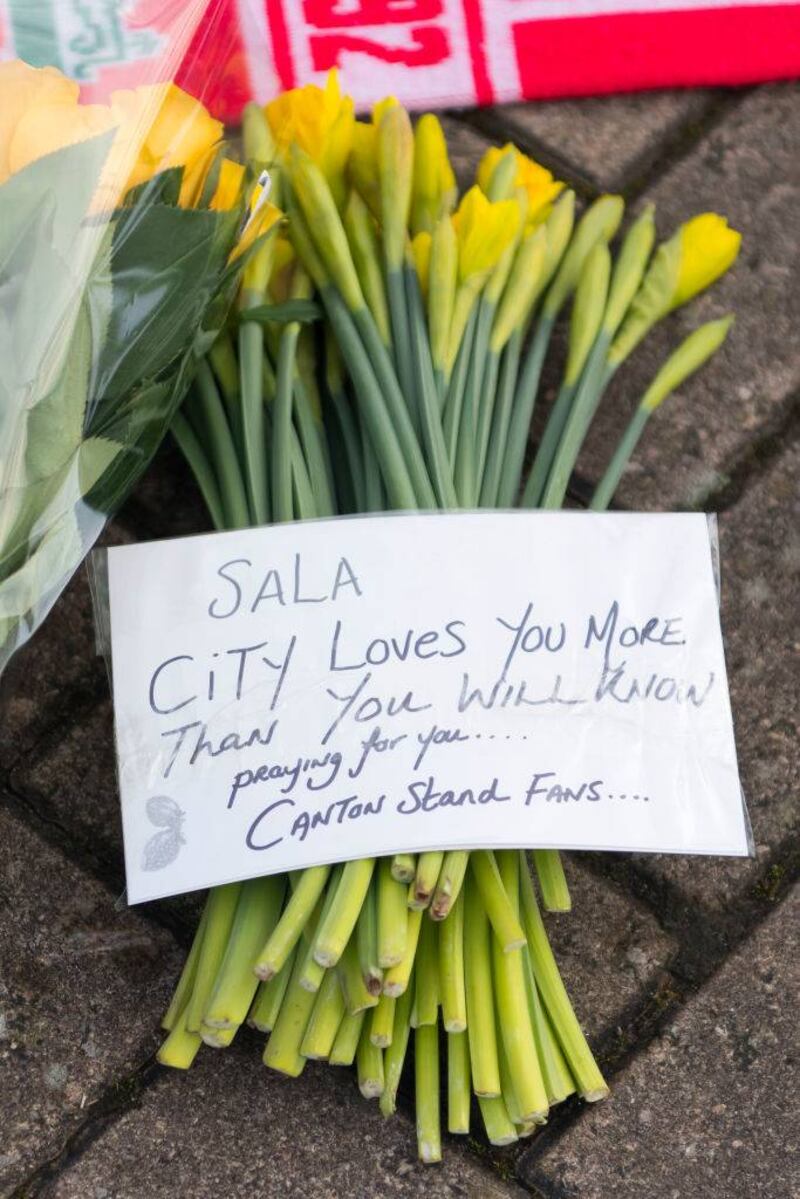 SALA
CiTY Loves You More.
Than You Will Know
praying for you.....
Canton Stand Fans....